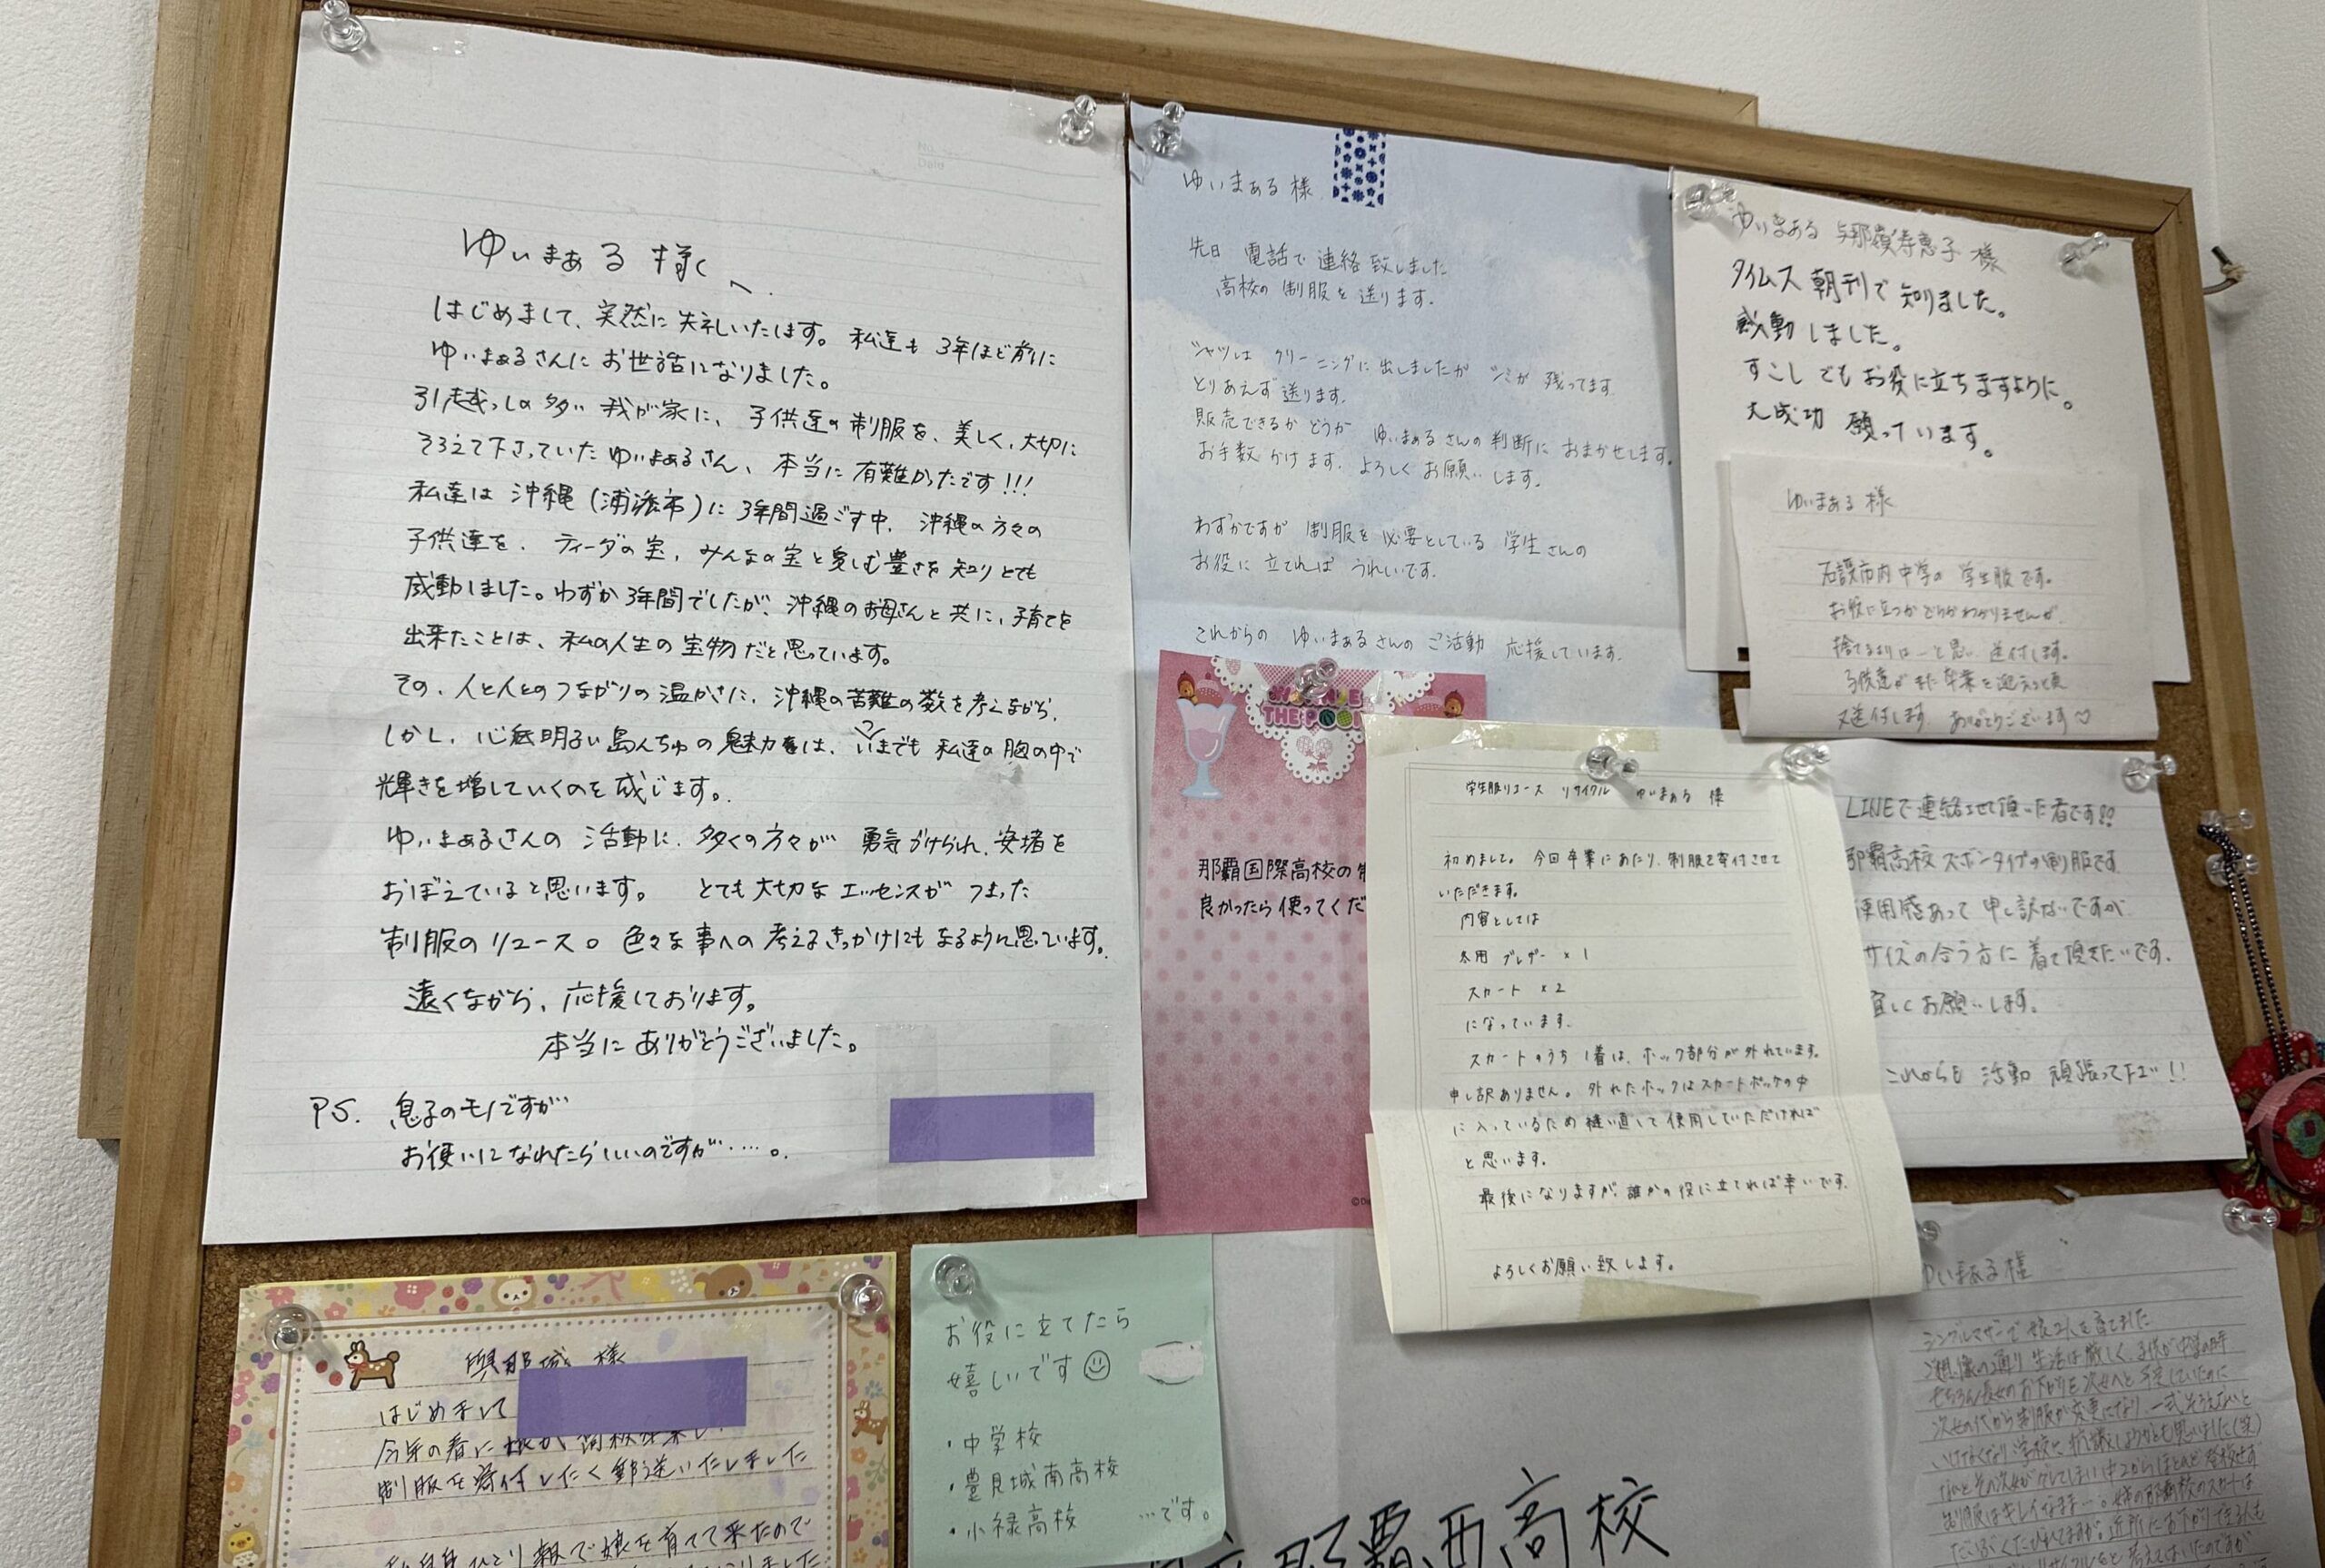 No.
Date
ゆいまぁる 様へ
はじめまして、突然に失礼いたします。私達も 3年ほど前に
ゆいまぁるさんに お世話になりました。
引越っしの多い 我が家に、子供達の制服を、美しく、大切に
そろえて下さっていた ゆいまぁるさん、本当に 有難かったです!!!
私達は 沖縄(浦添市)に 3年間過ごす中、沖縄の方々の
子供達を、ティーダの宝、みんなの宝と愛しむ豊さを 知りとても
感動しました。わずか 3年間でしたが、沖縄のお母さんと 共に、子育てを
出来たことは、私の人生の 宝物だと思っています。
その、人と人とのつながりの温かさに、沖縄の苦難の数を考えながら、
しかし、心底明るい 島んちゅの 魅力は、いまでも 私達の胸の中で
輝きを増していくのを 感じます。
ゆいまぁるさんの 活動に、多くの方々が 勇気づけられ、安堵を
おぼえていると思います。 とても大切な エッセンスが つまった
制服のリユース。色々な事への 考えるきっかけにも なるように思っています。
遠くながら、応援しております。
本当に ありがとうございました。
P.S. 息子のモノですが
お使いに なれたらいいのですが……。
ゆいまぁる 様
先日 電話で 連絡致しました
高校の 制服を 送ります。
シャツは クリーニングに 出しましたが シミが 残ってます
とりあえず 送ります。
販売できるか どうか ゆいまぁるさんの判断に おまかせします。
お手数かけます。よろしく お願いします。
わずかですが 制服を 必要としている 学生さんの
お役に 立てれば うれしいです。
これからの ゆいまぁるさんの ご活動 応援しています。
ゆいまぁる 与那嶺寿恵子 様
タイムス 朝刊で 知りました。
感動しました。
すこしでもお役に立ちますように。
大成功 願っています。
ゆいまぁる 様
市内中学の 学生服です。
お役に立つかどうかわかりませんが、
捨てるよりは…と思い 送付します。
子供達が また卒業を迎える頃
又送付します。ありがとうございます♡
THE POOH
那覇国際高校の
良かったら使ってくだ
学生服リユース リサイクル ゆいまぁる 様
初めまして。今回卒業にあたり、制服を寄付させて
いただきます。
内容としては
冬用 ブレザー ×1
スカート ×2
になっています。
スカートのうち 1着は、ホック部分が外れています。
申し訳ありません。外れたホックはスカートポッケの中
に入っているため縫い直して使用していただければ
と思います。
最後になりますが、誰かの役に立てれば幸いです。
よろしくお願い致します。
LINEで連絡させて頂いた者です!!
那覇高校 ズボンタイプの制服です
使用感あって 申し訳ないですが
サイズの合う方に 着て頂きたいです。
宜しくお願いします。
これからも 活動 頑張って下さい!!
様
はじめまして
今年の春に娘が 高校卒業し
制服を寄付したく郵送いたしました
ひとり親で娘を育てて来たので
お役に立てたら
嬉しいです☺
・中学校
・豊見城南高校
・小禄高校 …です。
那覇西高校
ゆいまぁる様
シングルマザーで 娘2人を育てました
ご想像の通り 生活は厳しく、子供が中学の時
もちろん長女のお下がりを次女へと 予定していたのに
次女の代から制服が変更になり、一式そろえないと
いけなくなり 学校に 抗議しようかとも思いました(笑)